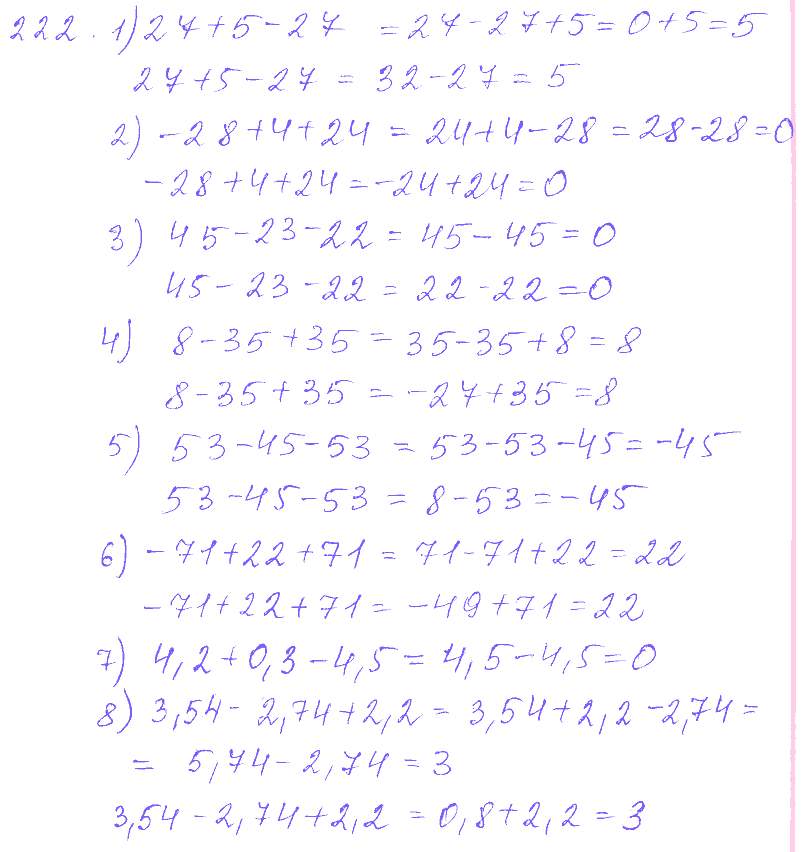 222. 1) 27+5-27 = 27-27+5=0+5=5
27+5-27 = 32-27 = 5
2) -28+4+24 = 24+4-28 = 28-28=0
-28+4+24=-24+24=0
3) 45-23-22 = 45-45=0
45-23-22 = 22-22=0
4) 8-35+35 = 35-35+8=8
8-35+35 = -27+35=8
5) 53-45-53 = 53-53-45=-45
53-45-53 = 8-53=-45
6) -71+22+71 = 71-71+22=22
-71+22+71 = -49+71=22
7) 4,2+0,3-4,5=4,5-4,5=0
8) 3,54-2,74+2,2 = 3,54+2,2-2,74=
= 5,74-2,74=3
3,54-2,74+2,2=0,8+2,2=3